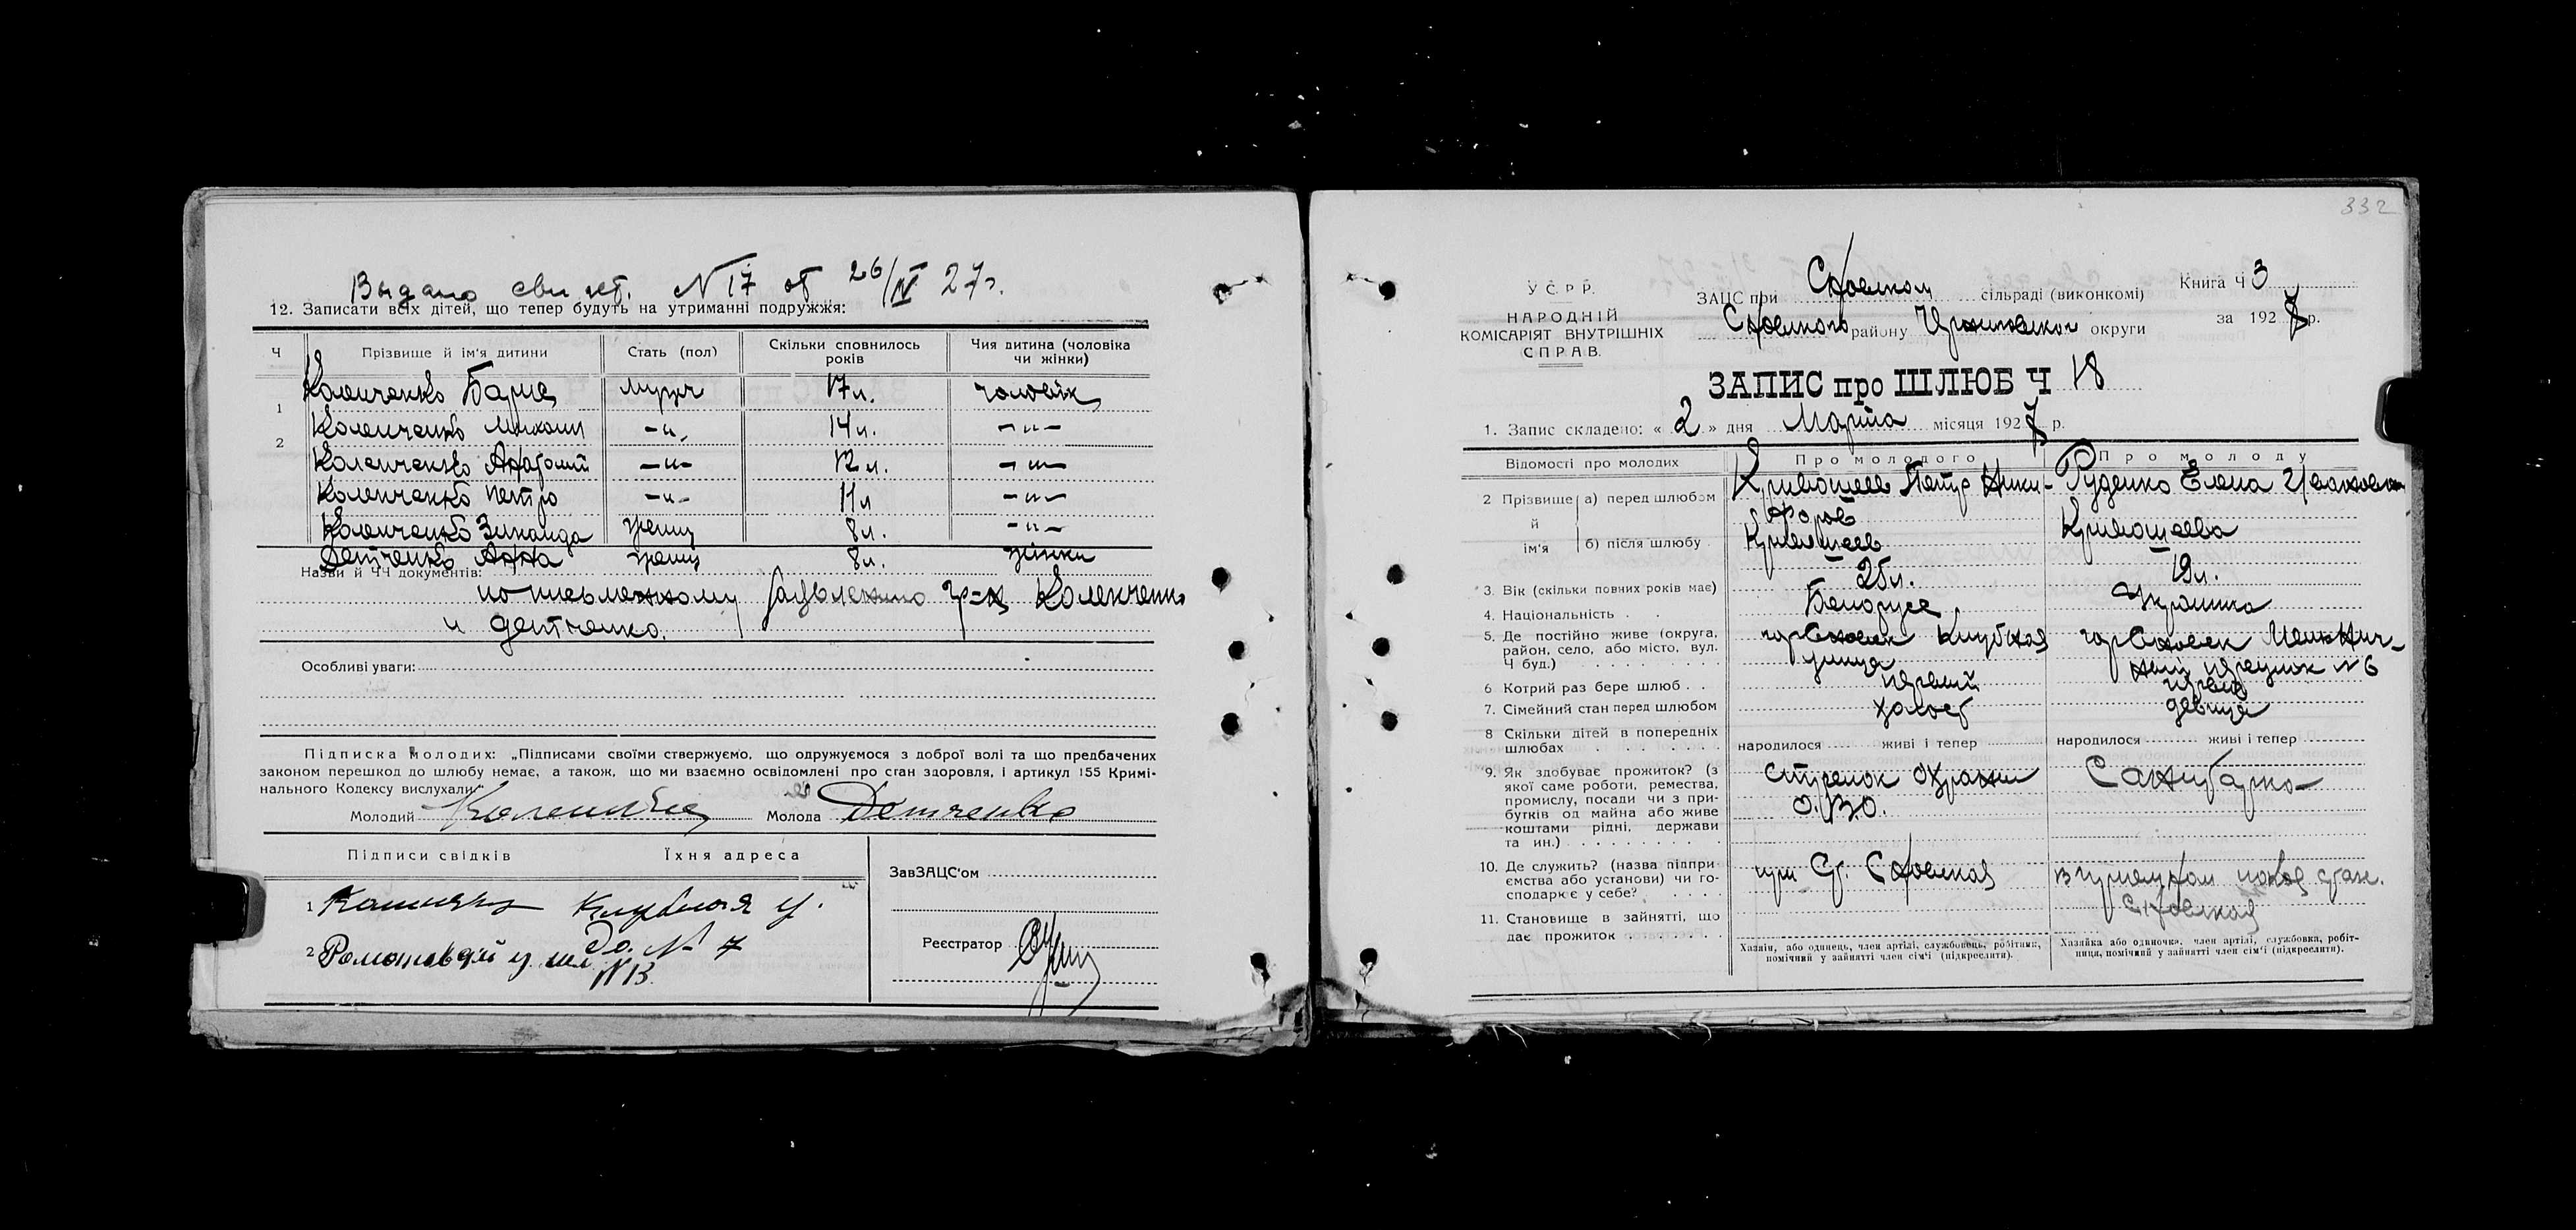 Выдано свид. N17 от 26/IV 27г.
12. Записати всіх дітей, що тепер будуть на утриманні подружжя:
Ч Прізвище й ім'я дитини Стать (пол) Скільки сповнилось років Чия дитина (чоловіка чи жінки)
Коленченко 17л. чоловік
1
Коленченко 14л. -"-
2
Коленченко Анатолий -"- 12л. -"-
Коленченко Петро -"- 11л -"-
Коленченко Зинаида женщ 8л. -"-
Детченко Анна женщ 8л. жінки
Назви й ЧЧ документів:
по письменному гр-н Коленченко
и Детченко.
Особливі уваги:
Підписка молодих: „Підписами своїми стверджуємо, що одружуємося з доброї волі та що предбачених
законом перешкод до шлюбу немає, а також, що ми взаємно освідомлені про стан здоровля, і артикул 155 Кримі-
нального Кодексу вислухали“
Молодий Молода Детченко
Підписи свідків Їхня адреса
1 Клубная у.
До. № 7
2 N 13.
ЗавЗАЦС'ом
Реєстратор
332
У С Р Р.
НАРОДНІЙ
КОМІСАРІЯТ ВНУТРІШНІХ
СПРАВ.
ЗАЦС при сільраді (виконкомі) Книга Ч 3
району округи за 1927 р.
ЗАПИС про ШЛЮБ Ч 18
1. Запис складено: « 2 » дня Марта місяця 1927 р.
Відомості про молодих Про молодого Про молоду
2 Прізвище й ім'я а) перед шлюбом Кривошеев Петр Ники- Руденко Елена
форов
б) після шлюбу Кривошеев Кривошеева
3. Вік (скільки повних років має) 25л. 19л.
4. Національність Белорусс Украинка
5. Де постійно живе (округа, район, село, або місто, вул. Ч буд.) гор Сновск Клубная улица гор Сновск переулок N 6
6 Котрий раз бере шлюб первый
7. Сімейний стан перед шлюбом холост девица
8 Скільки дітей в попередніх шлюбах народилося живі і тепер народилося живі і тепер
9. Як здобуває прожиток? (з якої саме роботи, ремества, промислу, посади чи з при-бутків од майна або живе коштами рідні, держави та ин.) стрелок охраны Санитарка
10. Де служить? (назва підпри-ємства або установи) чи го-сподаркє у себе? при Ст. Сновская в приемном покое стан. Сновская
11. Становище в зайнятті, що дає прожиток
Хазяїн, або одинець, член артілі, службовець, робітник, помічний у зайнятті член сім'ї (підкреслити).
Хазяйка або одиночка, член артілі, службовка, робіт-ниця, помічний у зайнятті член сім'ї (підкреслити).